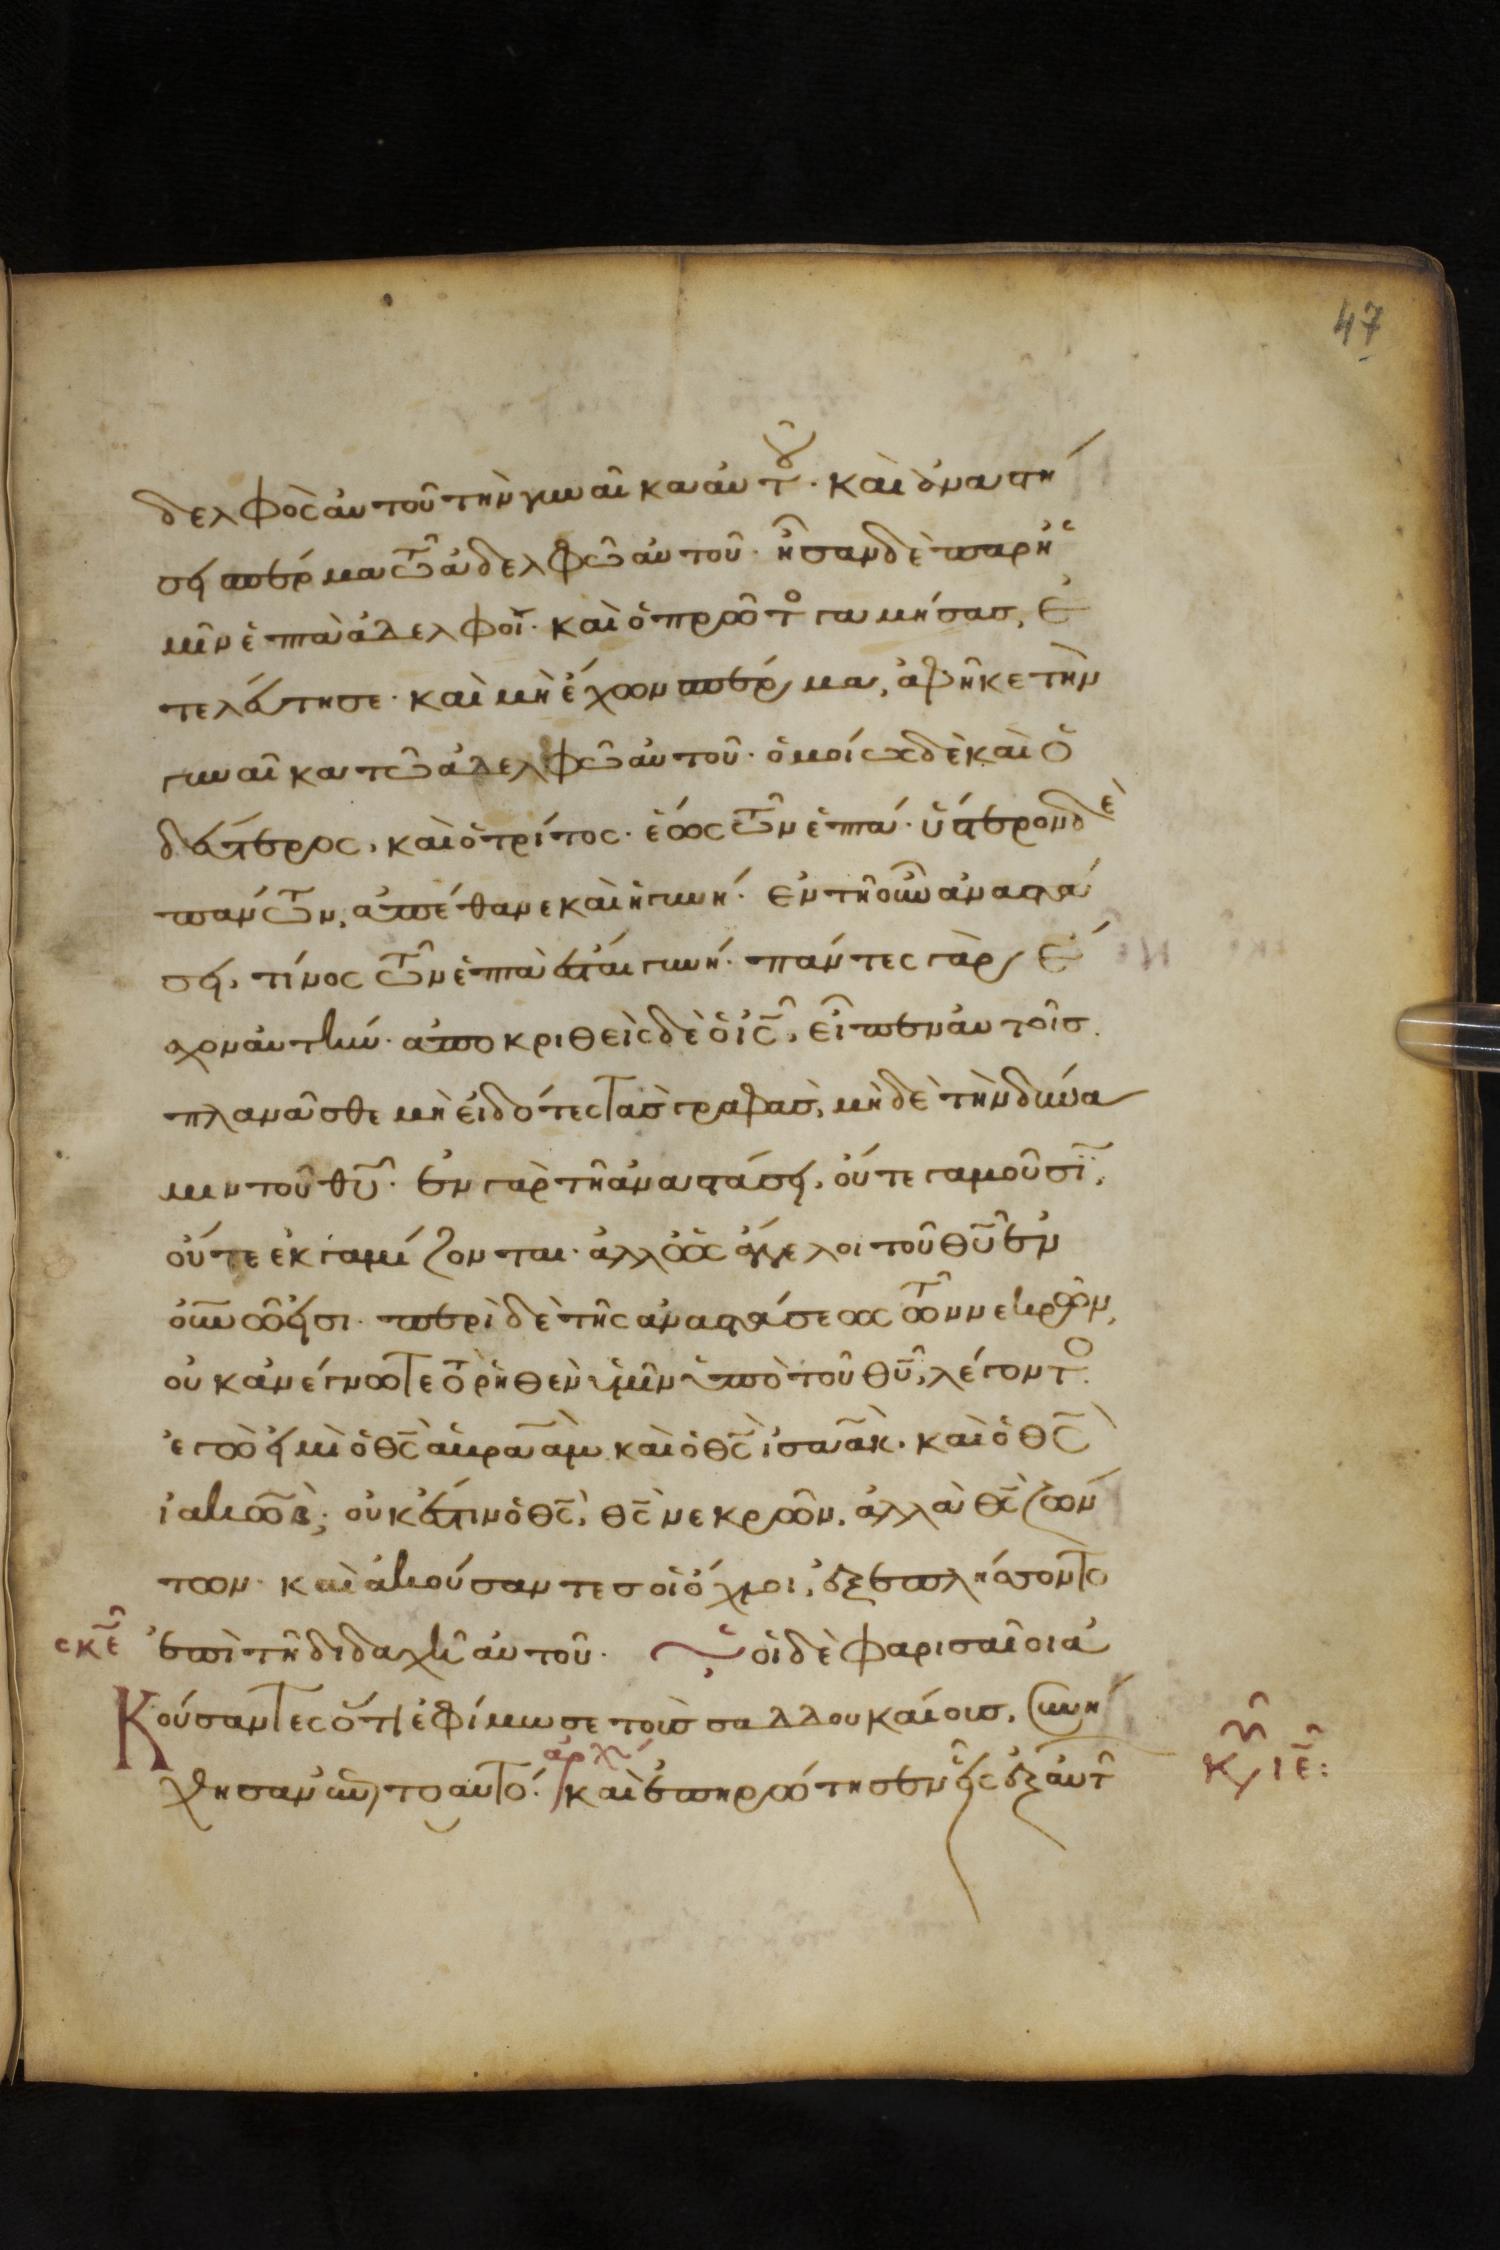 47
δελφὸς αὐτοῦ τὴν γυναῖκα αὐτοῦ· καὶ ἀναστή
σει σπέρμα τῶ ἀδελφῶ αὐτοῦ· ἦσαν δὲ παρ' ἡ
μῖν ἑπτὰ ἀδελφοί· καὶ ὁ πρῶτο γαμήσας, ἐ
τελεύτησε· καὶ μὴ ἔχων σπέρμα, ἀφῆκε τὴν
γυναῖκα τῶ ἀδελφῶ αὐτοῦ· ὁμοίως δὲ καὶ ὁ
δεύτερος, καὶ ὁ τρίτος· ἕως τῶν ἑπτά· ὕστερον δὲ
πάντων, ἀπέθανε καὶ ἡ γυνή· ἐν τῆ οὖν ἀναστά
σει, τίνος τῶν ἑπτὰ ἔσται γυνή· πάντες γὰρ ἔ
σχον αὐτήν· ἀποκριθεὶς δὲ ὁ ις, εἶπεν αὐτοῖς.
πλανᾶσθε μὴ εἰδότες τὰς γραφὰς, μὴ δὲ τὴν δύνα
μιν τοῦ θυ· ἐν γὰρ τῆ ἀναστάσει, οὔτε γαμοῦσι,
οὔτε ἐκγαμίζονται· ἀλλ' ὡς ἄγγελοι τοῦ θυ ἐν
οὐνω εἰσι· περὶ δὲ τῆς ἀναστάσεως τῶν νεκρῶν,
οὐκ ἀνέγνωτε τὸ ῥηθὲν ὑμῖν ὑπὸ τοῦ θυ, λέγοντο.
ἐγώ εἰμι ὁ θς ἀβραὰμ καὶ ὁ θς ἰσαὰκ· καὶ ὁ θς
ἰακώβ; οὐκ ἔστιν ὁ θς, θς νεκρῶν, ἀλλὰ θς ζών
των· καὶ ἀκούσαντες οἱ ὄχλοι, ἐξεπλήσσοντο
ἐπὶ τῆ διδαχῆ αὐτοῦ· οἱ δὲ φαρισαῖοι ἀ
Κούσαντες ὅτι ἐφίμωσε τοὺς σαδδουκαίους, συνή
χθησαν ἐπὶ τὸ αὐτό· καὶ ἐπηρώτησεν εἷς ἐξ αὐτ
ἀρχ